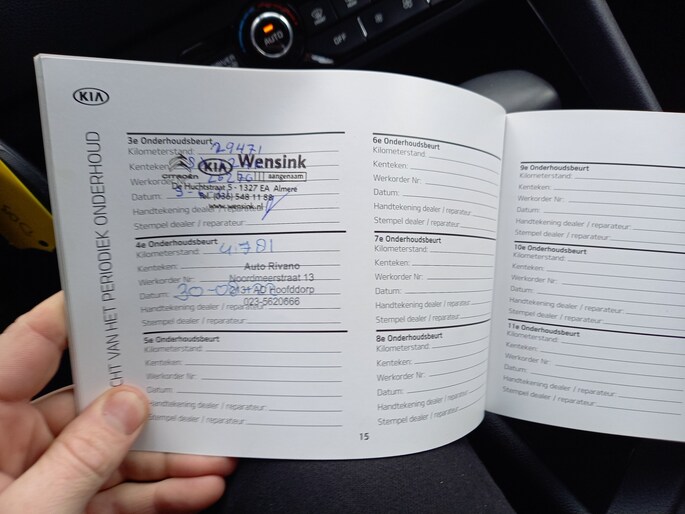 KIA
CHT VAN HET PERIODIEK ONDERHOUD
3e Onderhoudsbeurt
Kilometerstand: 29471
Kenteken:
Werkorder
Datum:
Handtekening dealer / reparateur:
Stempel dealer / reparateur:
CITROËN KIA Wensink
aangenaam
De Huchtstraat 5 - 1327 EA Almere
Tel. (036) 548 11 88
www.wensink.nl
4e Onderhoudsbeurt
Kilometerstand:
Kenteken:
Werkorder Nr.:
Datum: 30-
Handtekening dealer / reparateur:
Stempel dealer / reparateur:
Auto Rivano
Noordmeerstraat 13
2131 AD Hoofddorp
023-5620666
5e Onderhoudsbeurt
Kilometerstand:
Kenteken:
Werkorder Nr:
Datum:
Handtekening dealer / reparateur:
Stempel dealer / reparateur:
6e Onderhoudsbeurt
Kilometerstand:
Kenteken:
Werkorder Nr.:
Datum:
Handtekening dealer / reparateur:
Stempel dealer / reparateur:
7e Onderhoudsbeurt
Kilometerstand:
Kenteken:
Werkorder Nr.:
Datum:
Handtekening dealer / reparateur:
Stempel dealer / reparateur:
8e Onderhoudsbeurt
Kilometerstand:
Kenteken:
Werkorder Nr:
Datum:
Handtekening dealer / reparateur:
Stempel dealer / reparateur:
15
9e Onderhoudsbeurt
Kilometerstand:
Kenteken:
Werkorder Nr.:
Datum:
Handtekening dealer / reparateur:
Stempel dealer / reparateur:
10e Onderhoudsbeurt
Kilometerstand:
Kenteken:
Werkorder Nr.:
Datum:
Handtekening dealer / reparateur:
Stempel dealer / reparateur:
11e Onderhoudsbeurt
Kilometerstand:
Kenteken:
Werkorder Nr:
Datum:
Handtekening dealer / reparateur:
Stempel dealer / reparateur:
AUTO
OFF